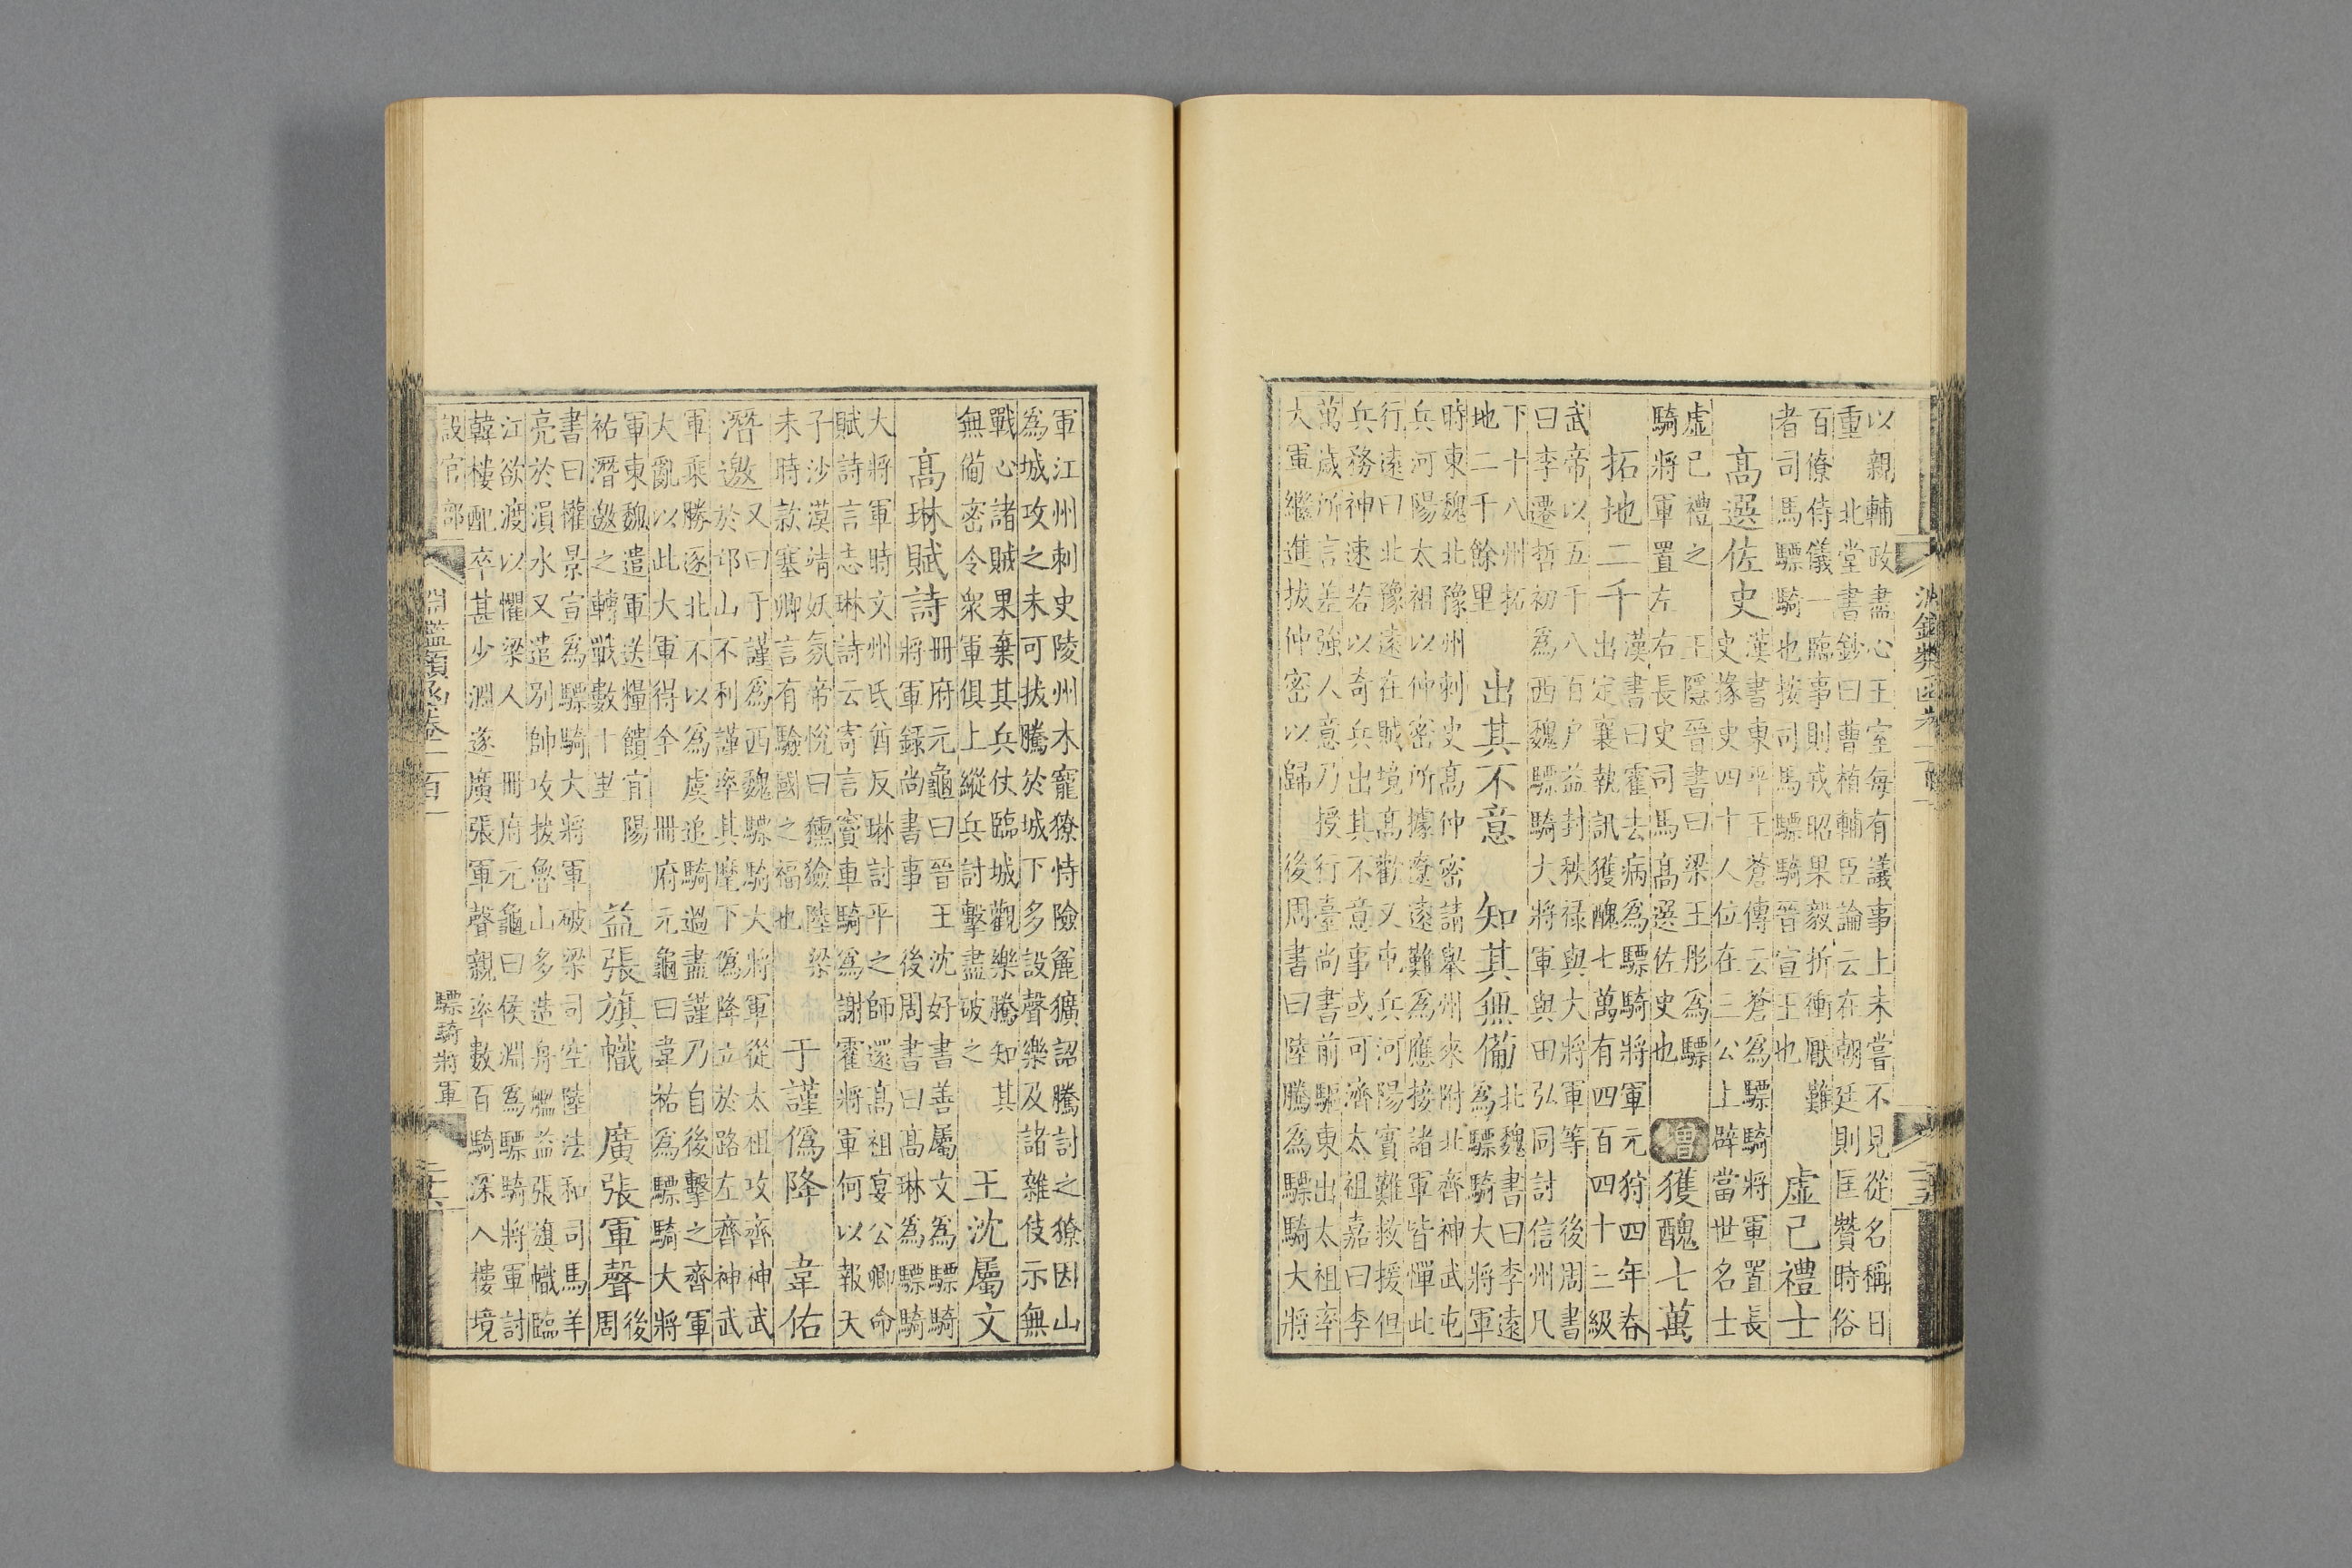 淵鑑類函卷一百一
以親輔政盡心王室每有議事上未嘗不見從名稱日
重　北堂書鈔曰曹植輔臣論云在朝廷則匡贊時俗
百僚侍儀一臨事則戎昭果毅折衝厭難
者司馬驃騎也按司馬驃騎晉宣王也
虛己禮士
高選佐史
漢書東平王蒼傳云蒼為驃騎將軍置長
史掾史四十人位在三公上辟當世名士
虛己禮之　王隱晉書曰梁王彤為驃
騎將軍置左右長史司馬高選佐史也
增獲醜七萬
拓地二千
漢書曰霍去病為驃騎將軍元狩四年春
出定襄執訊獲醜七萬有四百四十三級
武帝以五千八百戶益封秩祿與大將軍等　後周書
曰李遷哲初為西魏驃騎大將軍與田弘同討信州凡
下十八州拓
地二千餘里
出其不意　知其無備
北魏書曰李遠
為驃騎大將軍
時東魏北豫州刺史高仲密請舉州來附北齊神武屯
兵河陽太祖以仲密所據遼遠難為應接諸軍皆憚此
行遠曰北豫遠在賊境高歡又屯兵河陽實難救援但
兵務神速若以奇兵出其不意事或可濟太祖嘉曰李
萬歲所言差強人意乃授行臺尚書前驅東出太祖率
大軍繼進拔仲密以歸　後周書曰陸騰為驃騎大將
軍江州刺史陵州木寵獠恃險麄獷詔騰討之獠因山
為城攻之未可拔騰於城下多設聲樂及諸雜伎示無
戰心諸賊果棄其兵仗臨城觀樂騰知其
無備密令衆軍俱上縱兵討擊盡破之
王沈屬文
高琳賦詩
冊府元龜曰晉王沈好書善屬文為驃騎
將軍録尚書事　後周書曰高琳為驃騎
大將軍時文州氐酋反琳討平之師還高祖宴公卿命
賦詩言志琳詩云寄言竇車騎為謝霍將軍何以報天
子沙漠靖妖氛帝悅曰獯獫陸梁
未時款塞卿言有驗國之福也
于謹偽降　韋佑
潛邀
又曰于謹為西魏驃騎大將軍從太祖攻齊神武
於邙山不利謹率其麾下偽降立於路左齊神武
軍乘勝逐北不以為虞追騎過盡謹乃自後擊之齊軍
大亂以此大軍得全　冊府元龜曰韋祐為驃騎大將
軍東魏遣軍送糧饋宜陽
祐潛邀之轉戰數十里
益張旗幟　廣張軍聲
後
周
書曰權景宣為驃騎大將軍破梁司空陸法和司馬羊
亮於溳水又遣別帥攻拔魯山多造舟艦益張旗幟臨
江欲渡以懼梁人　冊府元龜曰侯淵為驃騎將軍討
韓樓配卒甚少淵遂廣張軍聲親率數百騎深入樓境
設官部　淵鑑類函卷一百一　驃騎將軍